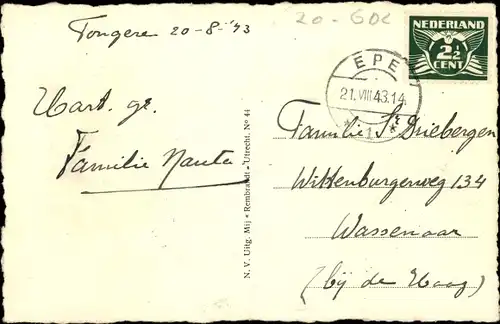 Tongere 20-8-'43
20-GDC
NEDERLAND
2½
CENT
EPE
21.VIII.43.14
* 1 *
Hart. gr.
Familie Nauta
N. V. Uitg. Mij * Rembrandt * Utrecht. Nº 44
Familie Sr. Driebergen
Wittenburgerweg 134
Wassenaar
(bij de Haag)